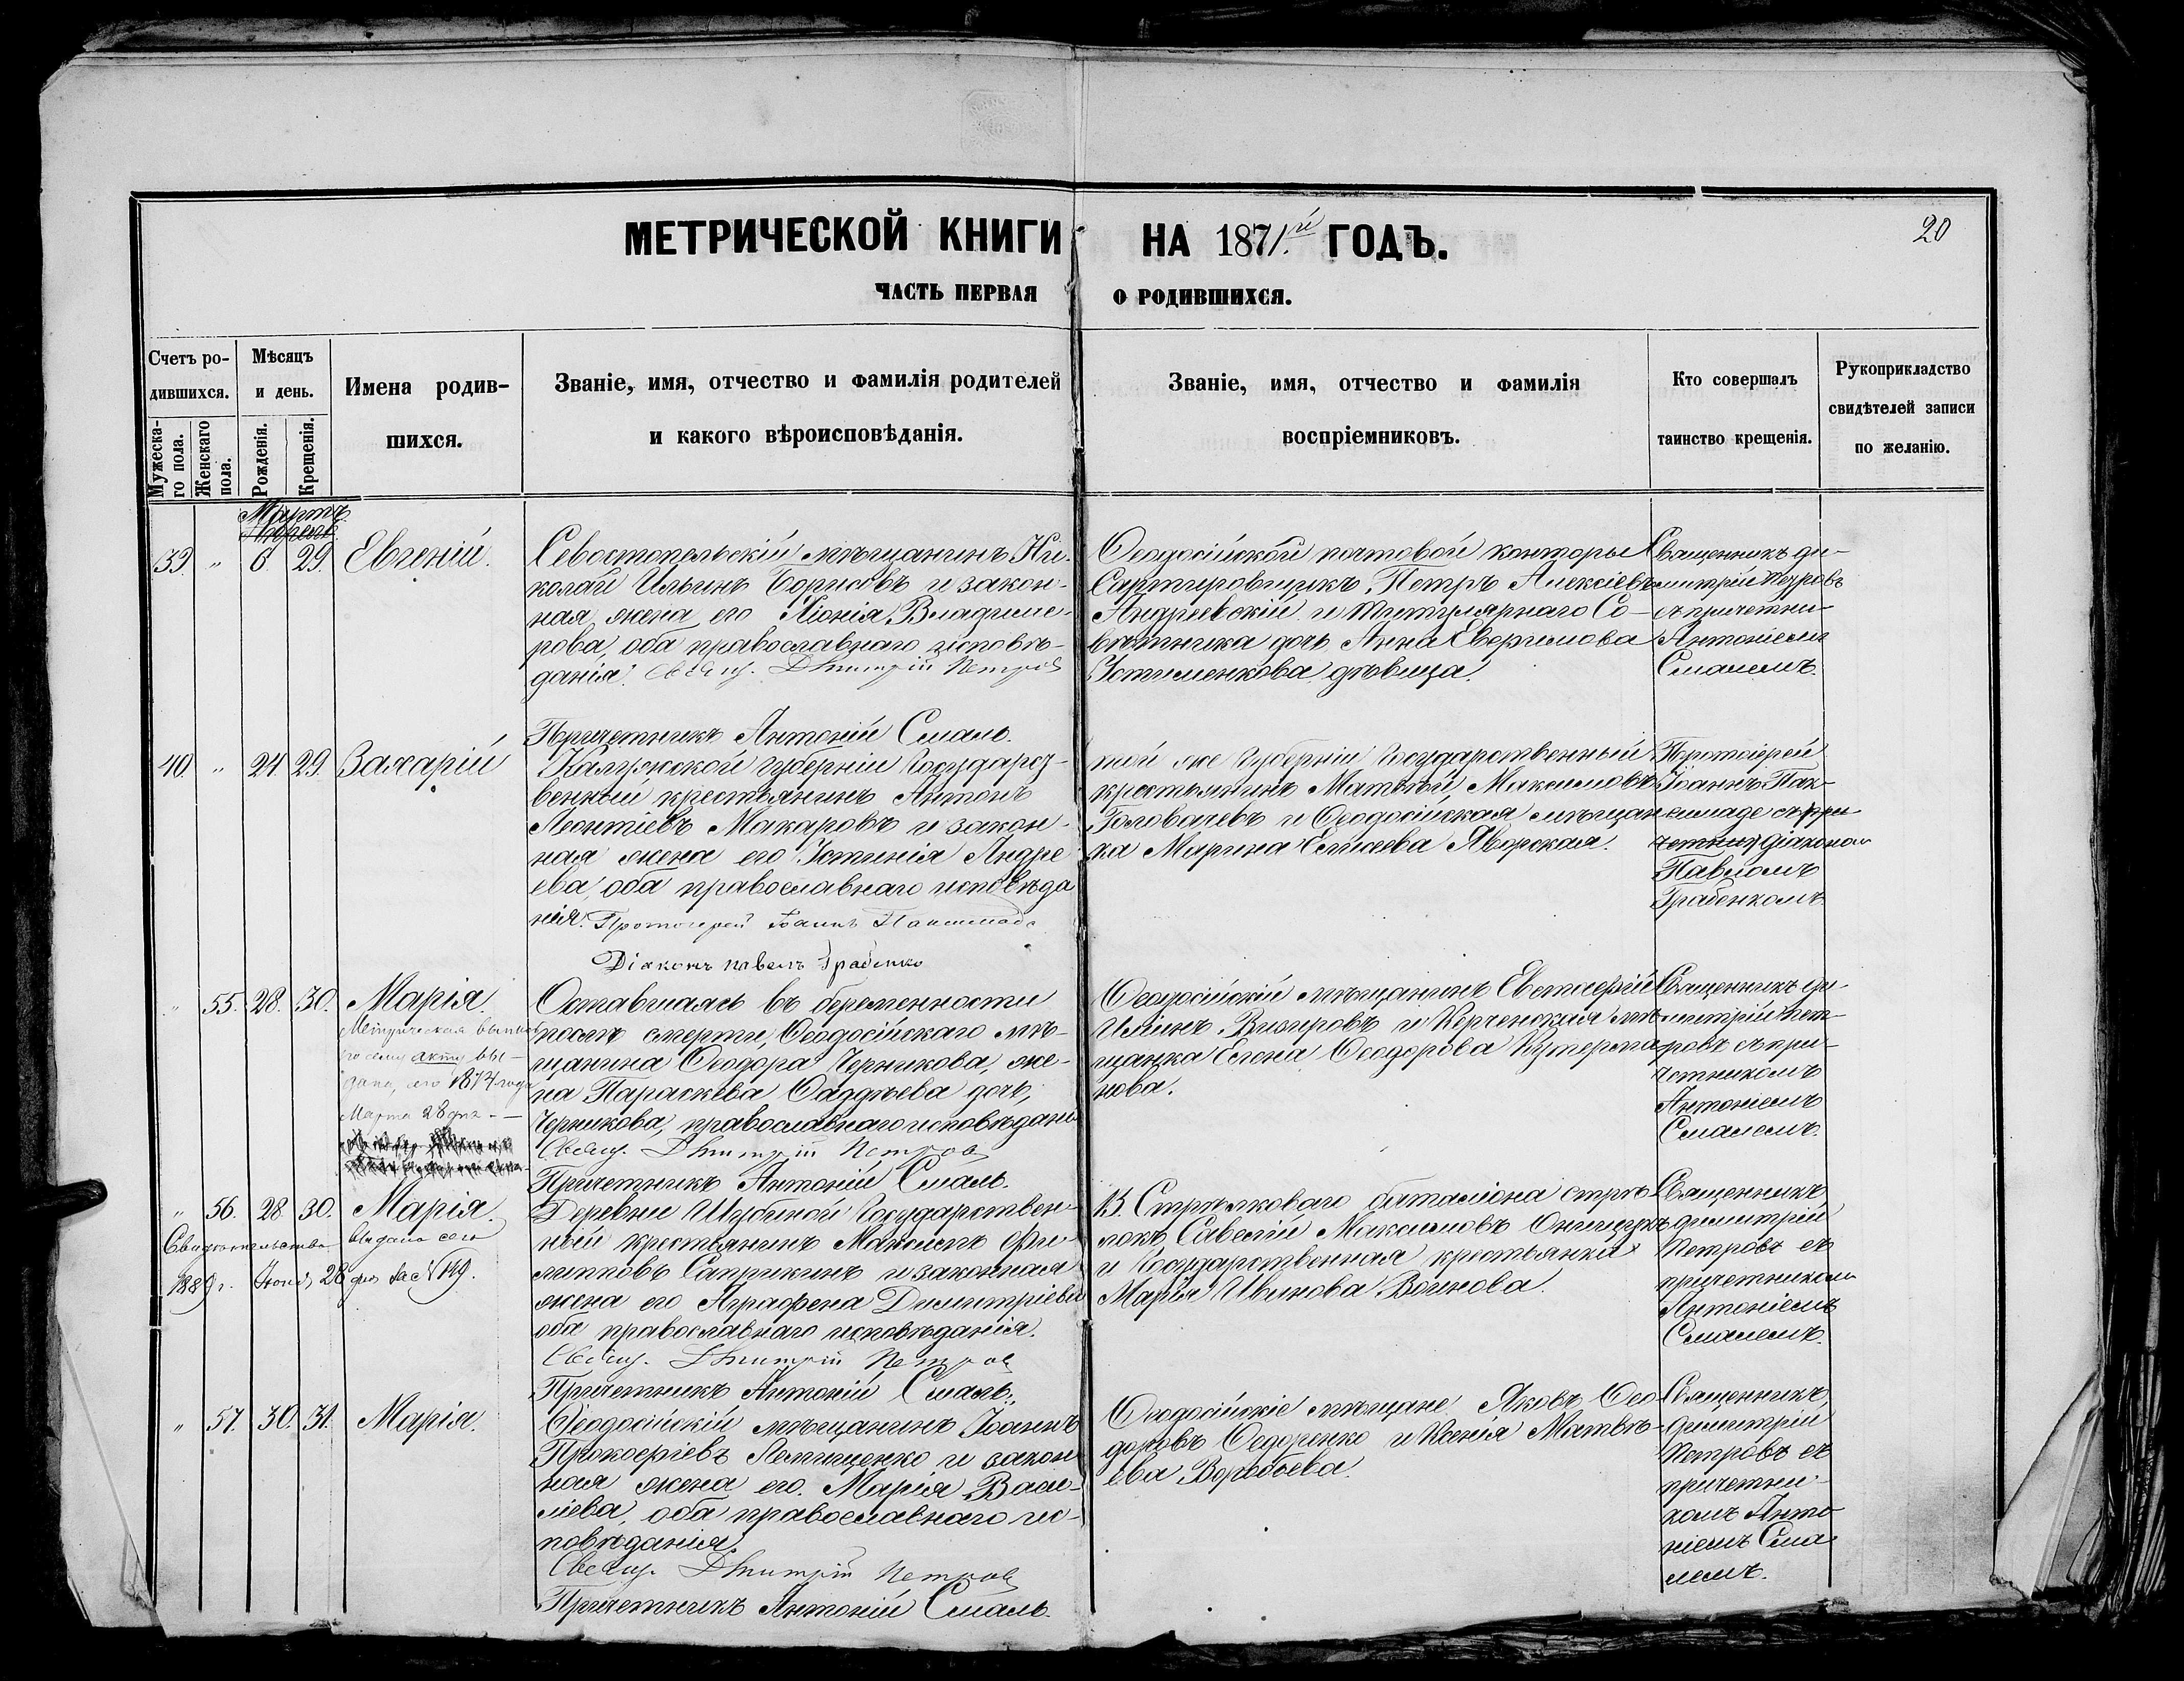 МЕТРИЧЕСКОЙ КНИГИ НА 1871.й ГОДЪ.
20
ЧАСТЬ ПЕРВАЯ О РОДИВШИХСЯ.
Счетъ ро-
дившихся.
Мужеска-
го пола.
Женскаго
пола.
Мѣсяцъ
и день.
Рожденія.
Крещенія.
Имена родив-
шихся.
Званіе, имя, отчество и фамилія родителей
и какого вѣроисповѣданія.
Званіе, имя, отчество и фамилія
воспріемниковъ.
Кто совершалъ
таинство крещенія.
Рукоприкладство
свидѣтелей записи
по желанію.
Мартъ
39. " 6. 29. Евгеній.
Севостопольскій мѣщанинъ Ни-
колай Ильинъ Борисовъ и закон-
ная жена его Хіонія Владиме-
рова, оба православнаго исповѣ-
данія. Свящ. Дмитрій Петровъ
Причетникъ Антоній Смаль.
Ѳеодосійской почтовой конторы
Сартировщикъ, Петръ Алексіевъ
Андреевскій и титулярнаго Со-
вѣтника дочь Анна Евфимова
Устименкова дѣвица.
Священникъ Ди-
митрій Петровъ
съ причетни-
Антоніемъ
Смалемъ.
40. " 24. 29. Захарій
Калужской губерніи Государст-
венный крестьянинъ Антонъ
Леонтіевъ Макаровъ и закон-
ная жена его Устинія Андре
ева, оба православнаго исповѣда
нія. Протоіерей Іоаннъ
Діаконъ Павелъ Грабенко
той же Губерніи Государственный
крестьянинъ Матвѣй Максимовъ
Головачевъ и Ѳеодосійская мѣщан
ка Марина Елисеева Яворская.
Протоіерей
Іоаннъ
съ при-
діакономъ
Павломъ
Грабенкомъ.
" 55. 28. 30. Марія.
Метрическая выпись
по сему акту вы-
дана, сего 1874 года
Марта 28 дня. —
Оставшаясь въ беременности
послѣ смерти, Ѳеодосійскаго мѣ-
щанина Ѳеодора Черникова, же-
на Параскева Фаддѣева дочь,
Черникова, православнаго исповѣдан.
Свящ. Дмитрій Петровъ
Причетникъ Антоній Смаль.
Ѳеодосійскій мѣщанинъ Евстафій
Ильинъ Визировъ и Керченская мѣ-
щанка Елена Ѳеодорова
нова.
Священникъ Ди-
митрій Пет-
ровъ съ при-
четникомъ
Антоніемъ
Смалемъ.
" 56. 28. 30. Марія.
Свидѣтельство выдано сего
1889 г. Іюня 28 дня за № 149.
Деревни Шубиной Государствен-
ный крестьянинъ Максимъ Фи-
липповъ Саприкинъ и законная
жена его Аграфена Димитріева
оба православнаго исповѣданія.
Свящ. Дмитрій Петровъ
Причетникъ Антоній Смаль.
Стрѣлковаго баталіона стрѣ
локъ, Савелій Максимовъ Онищукъ
и Государственная крестьянка
Марія Иванова Воинова.
Священникъ
Димитрій
Петровъ съ
причетникомъ
Антоніемъ
Смалемъ.
" 57. 30. 31. Марія.
Ѳеодосійскій мѣщанинъ Іоаннъ
Прокофріевъ Лемищенко и закон
ная жена его Марія Васи-
ліева, оба православнаго ис-
повѣданія.
Свящ. Дмитрій Петровъ
Причетникъ Антоній Смаль.
Ѳеодосійскіе мѣщане Яковъ Ѳео
доровъ Федоренко и Ксенія Матвѣ-
ева Воробьева.
Священникъ,
Димитрій
Петровъ съ
причетни-
комъ Анто
ніемъ Сма
лемъ.